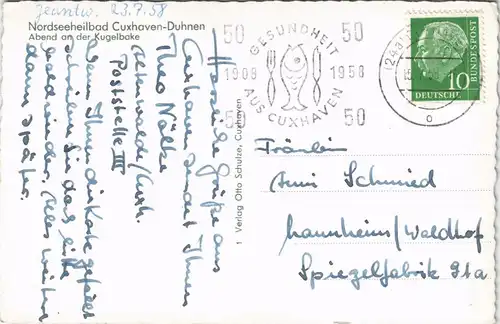 Jeantw. 23.7.58
Nordseeheilbad Cuxhaven-Duhnen
Abend an der Kugelbake
Herzliche Grüße aus
Cuxhaven sendet Ihnen
Theo Nölke
Altenwalde/Cuxh.
Poststelle III
Wenn Ihnen die Karte gefällt
schreiben Sie doch bitte
bald wieder. Alles weitere
dann später.
1 Verlag Otto Schulze, Cuxhaven
50 50
GESUNDHEIT
1908 1958
AUS CUXHAVEN
50 50
(24a)
10
DEUTSCHE BUNDESPOST
Fräulein
Anni Schmied
Mannheim/Waldhof
Spiegelfabrik 91a